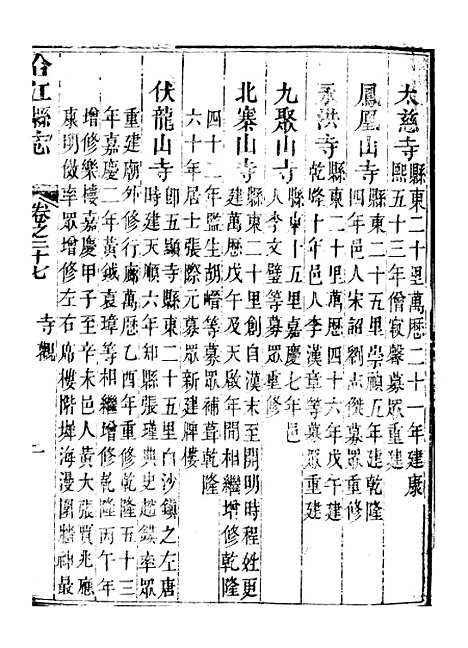 太慈寺縣東二十里萬歷二十一年建康
熙五十三年僧寂馨募眾重建
鳳凰山寺縣東二十五里崇禎五年建乾隆
四年邑人宋詔劉志傑募眾重修
洪寺縣東二十里萬歷四十六年戊午建
乾隆十年邑人李漢章等募眾重建
九聚山寺縣東十五里嘉慶七年邑
人李文璧等募眾重修
北寨山寺縣東二十里創自漢末至開明時程姓更
建萬歷戊午年天啟年間相繼增修乾隆
四十二年監生胡嶒等募眾補葺乾隆
六十年居士張際元募眾新建牌樓
伏龍山寺即五顯寺縣東二十五里白沙鎮之左唐
時建天順六年知縣張瑾典史趙鎮率眾
重建廟外修行廊萬歷乙酉年重修乾隆五十三
年嘉慶二年黃鉞袁瑋等相繼增修乾隆丙午年
增修樂樓嘉慶甲子至辛未邑人黃大張買兆應
康明儆率眾增修左右廊樓階墀海漫圍牆神最
合江縣志
卷之二十七
寺觀
一